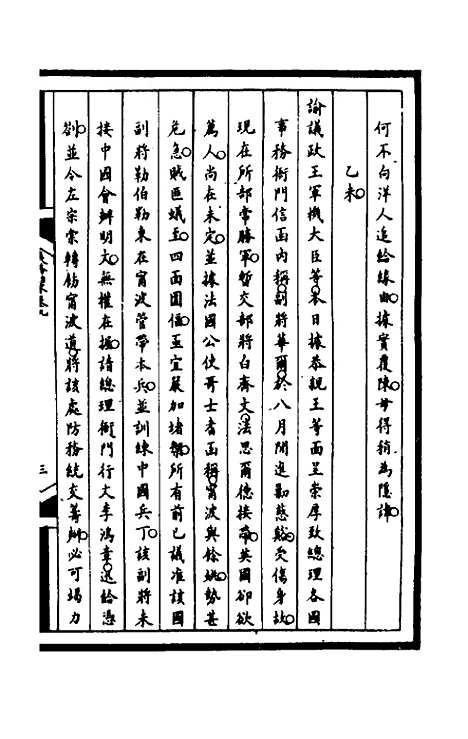 何不向洋人追給緣由據實覆陳毋得稍為隱諱
乙未
諭議政王軍機大臣等本日據恭親王等面呈崇厚致總理各國
事務衙門信函內稱副將華爾於八月間進勦慈谿受傷身故
現在所部常勝軍暫交部將白齊文法思爾德接帶英國卻欲
薦人尚在未定並據法國公使哥士耆函稱甯波與餘姚勢甚
危急賊匪蟻至四面圍偪亟宜嚴加堵禦所有前已議准該國
副將勒伯勒東在甯波管帶本兵並訓練中國兵丁該副將未
接中國會辦明文無權在握請總理衙門行文李鴻章迅給憑
劄並令左宗棠轉飭甯波道將該處防務統交籌辦必可竭力
三